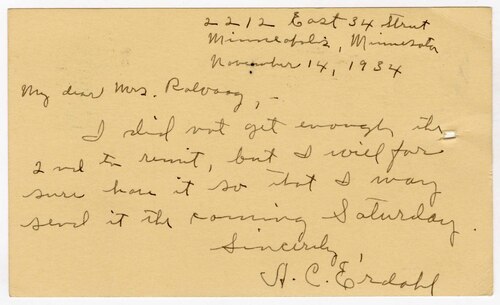 2212 East 34 Street
Minneapolis, Minnesota
November 14, 1934
My dear Mrs. Rolvaag,-
I did not get enough the
2nd to remit, but I will for
sure have it so that I may
send it the coming Saturday.
Sincerely,
A. C. Erdahl